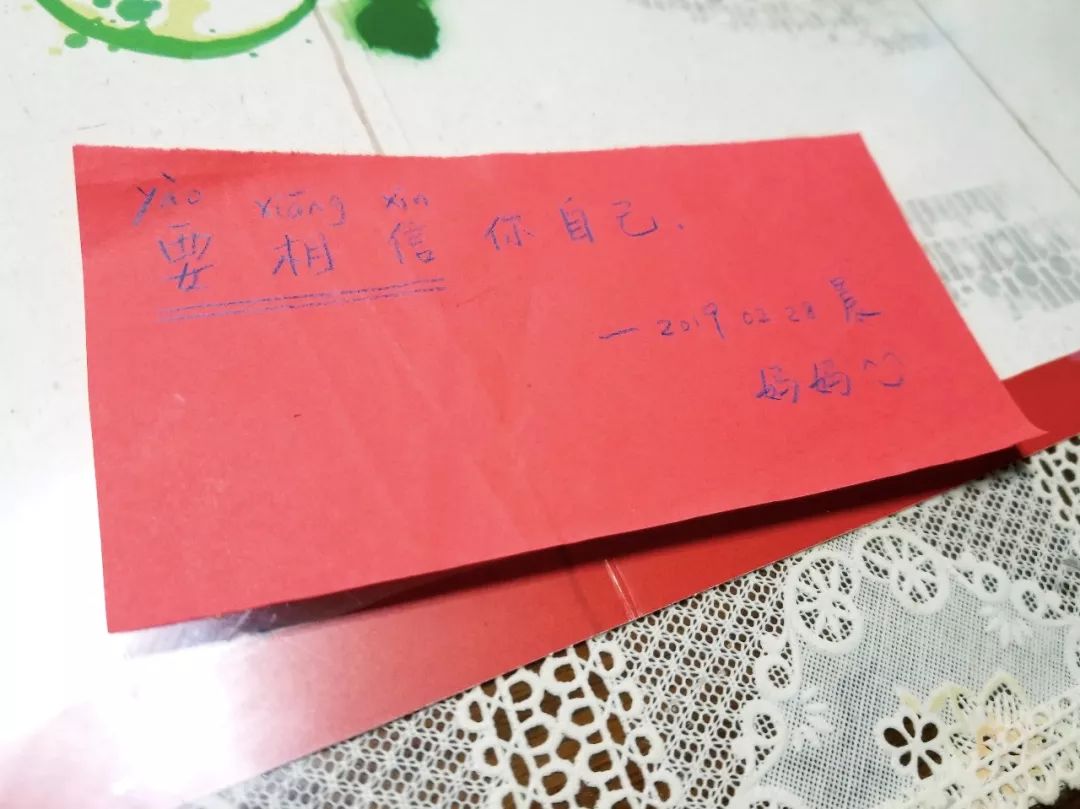 yào xiāng xìn
要相信你自己.
—2019 02 28 晨
妈妈